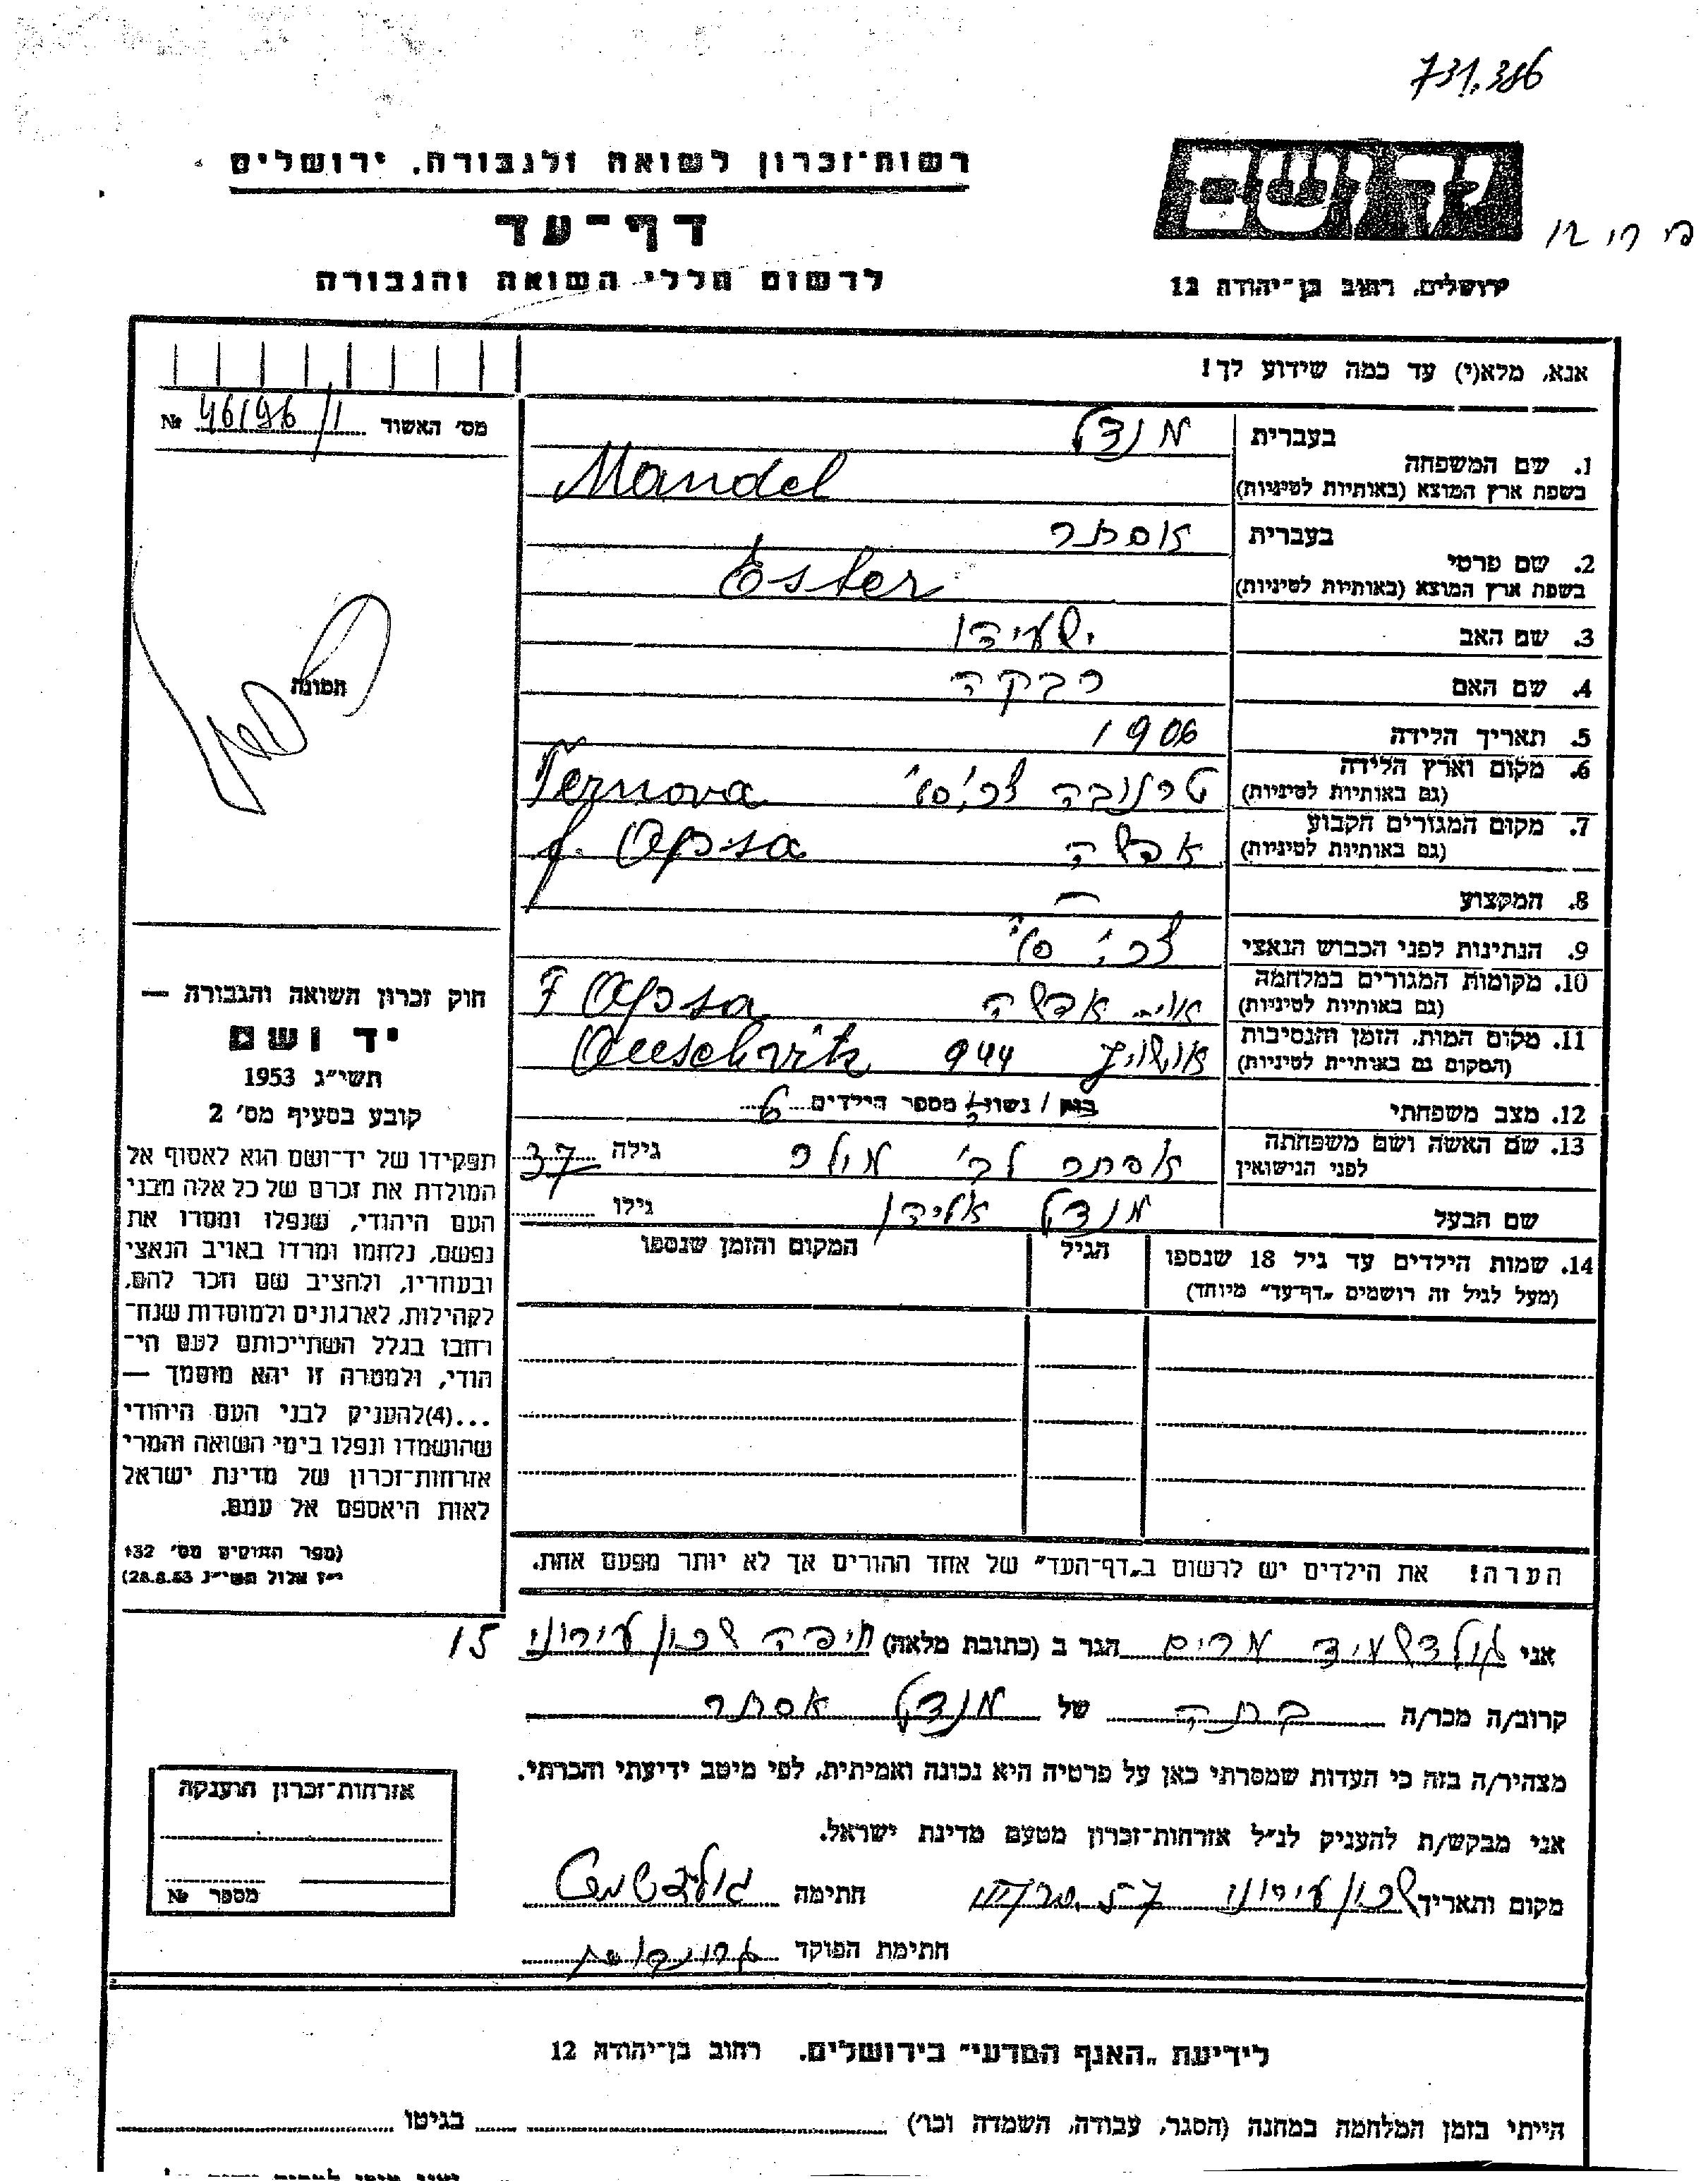 731.386
רשות־זכרון לשואה ולגבורה, ירושלים
יד ושם
דף־עד
לרשום חללי השואה והגבורה
ירושלים, רחוב בן־יהודה 12
אנא, מלא(י) עד כמה שידוע לך!
מס׳ האשור 46196/1 №
בעברית מנדל
1. שם המשפחה
בשפת ארץ המוצא (באותיות לטיניות) Mandel
בעברית אסתר
2. שם פרטי
בשפת ארץ המוצא (באותיות לטיניות) Ester
3. שם האב
4. שם האם רבקה
תמונה
5. תאריך הלידה 1906
6. מקום וארץ הלידה
(גם באותיות לטיניות) טרנובה צ׳כ Ternova
7. מקום המגורים הקבוע
(גם באותיות לטיניות) אפשה f. Opsa
8. המקצוע —
9. הנתינות לפני הכבוש הנאצי
10. מקומות המגורים במלחמה
(גם באותיות לטיניות) אפשה F Opsa
11. מקום המות, הזמן והנסיבות
(המקום גם באותיות לטיניות) אושויץ 944 Auschvitz
12. מצב משפחתי רוק / נשוי/ה מספר הילדים 6
13. שם האשה ושם משפחתה
לפני הנישואין אסתר לבי׳ גילה 37
שם הבעל מנדל גילו
14. שמות הילדים עד גיל 18 שנספו
(מעל לגיל זה רושמים „דף־עד״ מיוחד)
הגיל
המקום והזמן שנספו
חוק זכרון השואה והגבורה —
יד ושם
תשי״ג 1953
קובע בסעיף מס׳ 2
תפקידו של יד־ושם הוא לאסוף אל
המולדת את זכרם של כל אלה מבני
העם היהודי, שנפלו ומסרו את
נפשם, נלחמו ומרדו באויב הנאצי
ובעוזריו, ולהציב שם וזכר להם,
לקהילות, לארגונים ולמוסדות שנח־
רחבו בגלל השתייכותם לעם הי־
הודי, ולמטרה זו יהא מוסמך —
...(4) להעניק לבני העם היהודי
שהושמדו ונפלו בימי השואה והמרי
אזרחות־זכרון של מדינת ישראל
לאות היאספם אל עמם.
(ספר החוקים מס׳ 132
י״ז אלול תשי״ג 28.8.53)
הערה! את הילדים יש לרשום ב„דף־העד״ של אחד ההורים אך לא יותר מפעם אחת.
אני גולדשמיד מרים הגר ב (כתובת מלאה) חיפה שכון עירוני 15
קרוב/ה מכר/ה בתה של מנדל אסתר
מצהיר/ה בזה כי העדות שמסרתי כאן על פרטיה היא נכונה ואמיתית, לפי מיטב ידיעתי והכרתי.
אני מבקש/ת להעניק לנ״ל אזרחות־זכרון מטעם מדינת ישראל.
מקום ותאריך שכון עירוני חתימה גולדשמיט
חתימת הפוקד
אזרחות־זכרון הוענקה
מספר №
לידיעת „האגף המדעי״ בירושלים, רחוב בן־יהודה 12
הייתי בזמן המלחמה במחנה (הסגר, עבודה, השמדה וכו׳) בגיטו